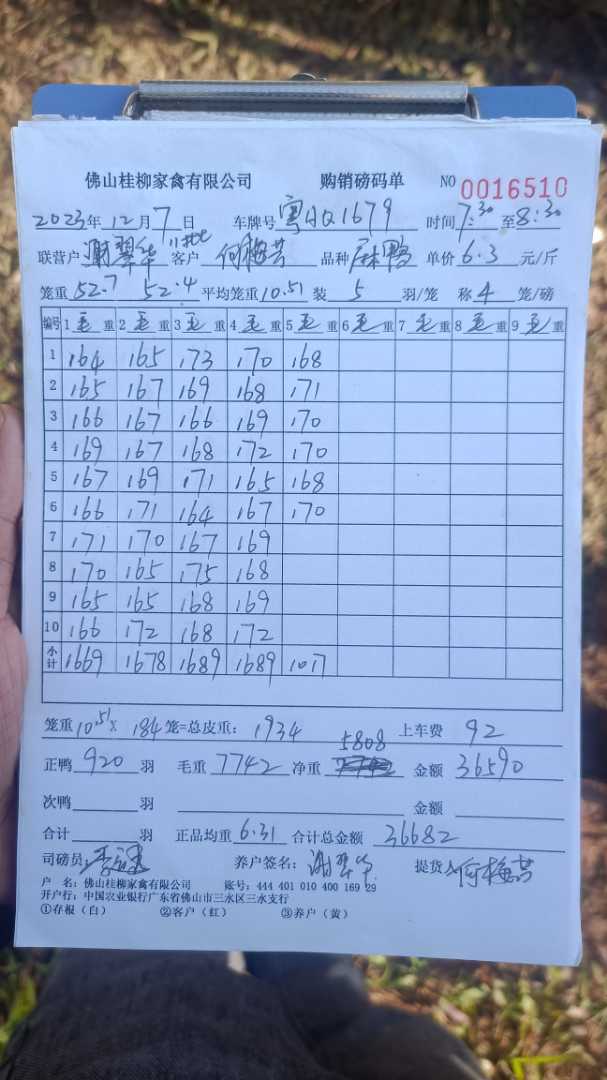 佛山桂柳家禽有限公司 购销磅码单 NO 0016510
2023年 12月 7日 车牌号 粤AQ1679 时间 7:30 至 8:30
联营户 谢翠华 11批 客户 何梅芳 品种 麻鸭 单价 6.3 元/斤
笼重 52.7 52.4 平均笼重 10.51 装 5 羽/笼 称 4 笼/磅
编号 1 毛 重 2 毛 重 3 毛 重 4 毛 重 5 毛 重 6 毛 重 7 毛 重 8 毛 重 9 毛 重
1 164 165 173 170 168
2 165 167 169 168 171
3 166 167 166 169 170
4 169 167 168 172 170
5 167 169 171 165 168
6 166 171 164 167 170
7 171 170 167 169
8 170 165 175 168
9 165 165 168 169
10 166 172 168 172
小计 1669 1678 1689 1689 1017
笼重 10.51 X 184 笼=总皮重: 1934 上车费 92
正鸭 920 羽 毛重 7742 净重 5808 金额 36590
次鸭 羽 金额
合计 羽 正品均重 6.31 合计总金额 36682
司磅员: 养户签名: 谢翠华 提货人 何梅芳
户 名: 佛山桂柳家禽有限公司 账号: 444 401 010 400 169 29
开户行: 中国农业银行广东省佛山市三水区三水支行
①存根(白) ②客户(红) ③养户(黄)